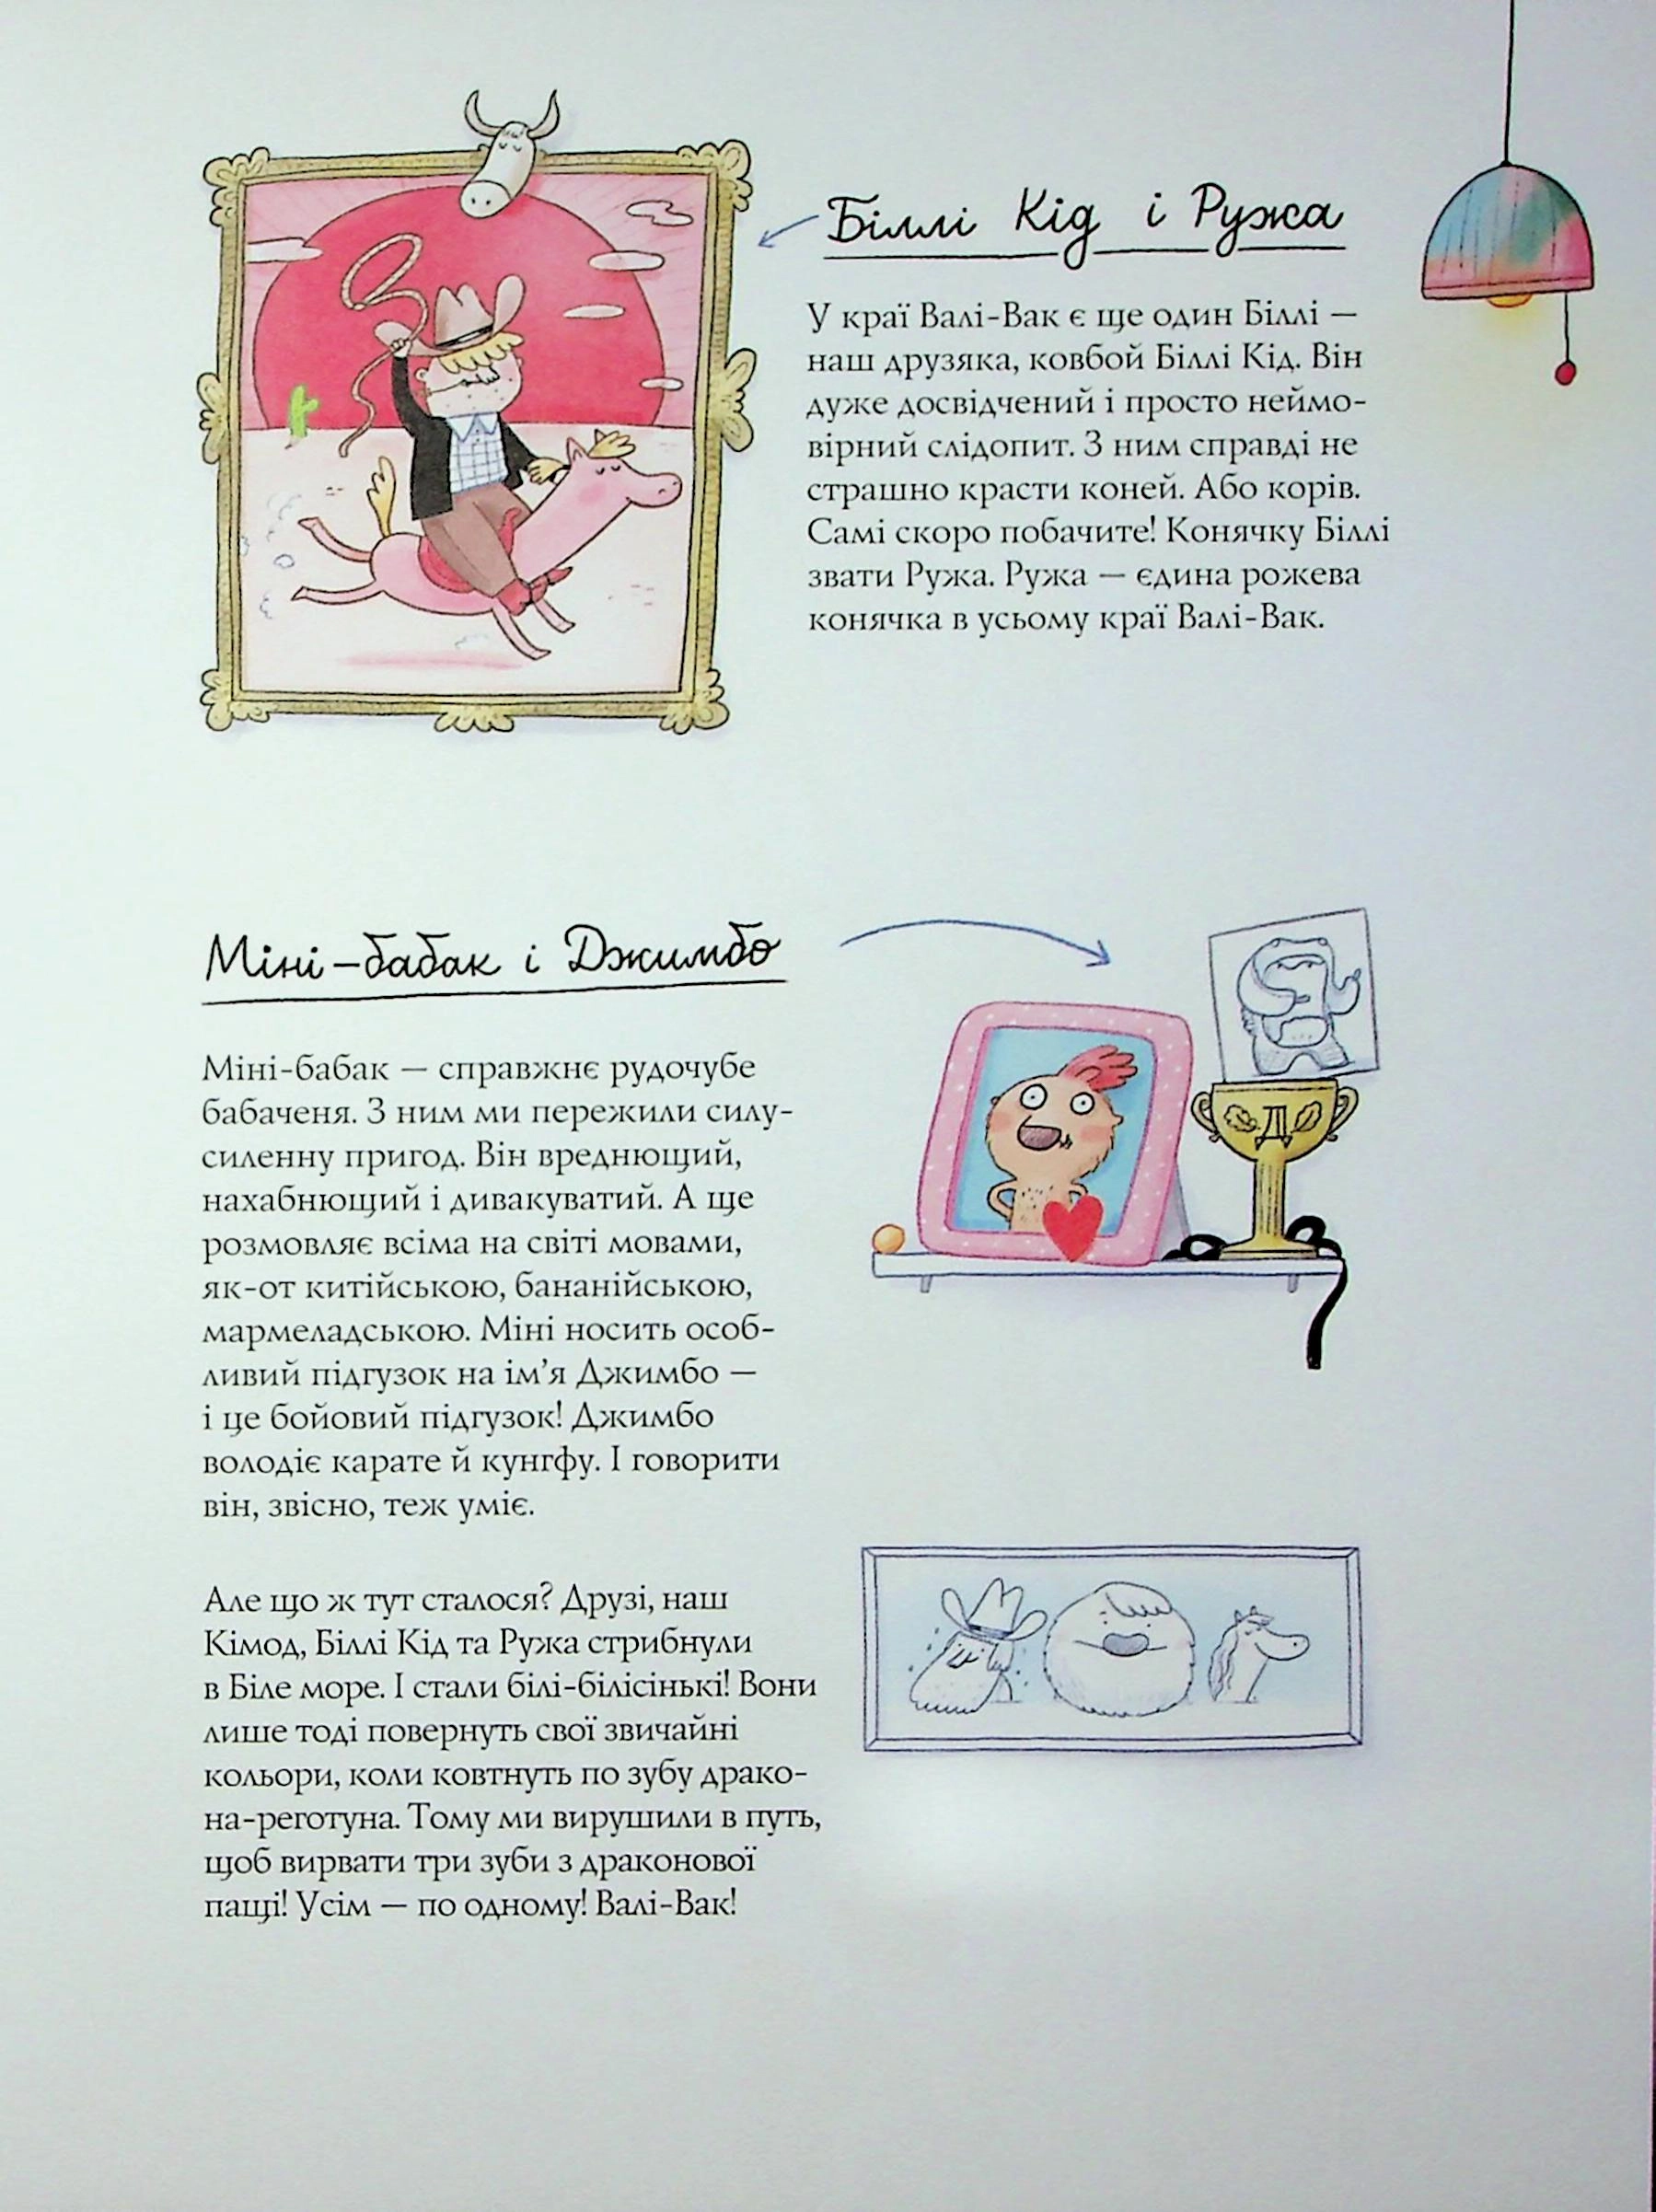 Біллі Кід і Ружа
У краї Валі-Вак є ще один Біллі —
наш друзяка, ковбой Біллі Кід. Він
дуже досвідчений і просто неймо-
вірний слідопит. З ним справді не
страшно красти коней. Або корів.
Самі скоро побачите! Конячку Біллі
звати Ружа. Ружа — єдина рожева
конячка в усьому краї Валі-Вак.
Міні-бабак і Джимбо
Міні-бабак — справжнє рудочубе
бабаченя. З ним ми пережили силу-
силенну пригод. Він вреднющий,
нахабнющий і дивакуватий. А ще
розмовляє всіма на світі мовами,
як-от китійською, бананійською,
мармеладською. Міні носить особ-
ливий підгузок на ім’я Джимбо —
і це бойовий підгузок! Джимбо
володіє карате й кунгфу. І говорити
він, звісно, теж уміє.
Д
Але що ж тут сталося? Друзі, наш
Кімод, Біллі Кід та Ружа стрибнули
в Біле море. І стали білі-білісінькі! Вони
лише тоді повернуть свої звичайні
кольори, коли ковтнуть по зубу драко-
на-реготуна. Тому ми вирушили в путь,
щоб вирвати три зуби з драконової
пащі! Усім — по одному! Валі-Вак!